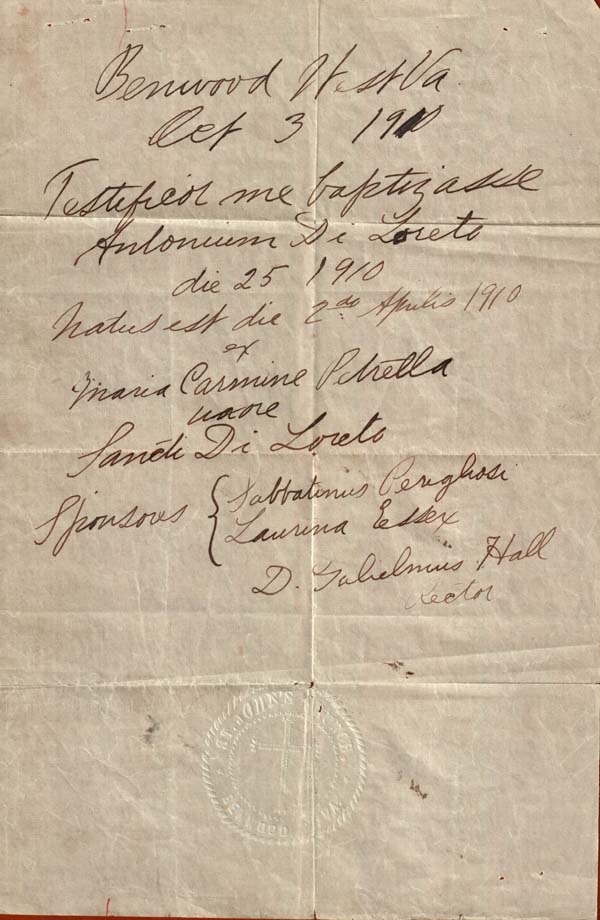 Benwood West Va.
Oct 3 1910
Testificor me baptizasse
Antonium Di Loreto
die 25 1910
Natus est die 2do Aprilis 1910
ex
Maria Carmine Petrella
uxore
Sancti Di Loreto
Sponsores { Sabbatinus
Laurina Essex
D. Gulielmus Hall
Rector
ST. JOHN'S CHURCH
BENWOOD W. VA.